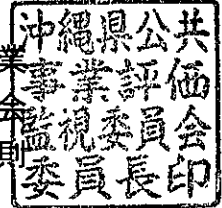 沖縄県公共
事業評価
監視委員会
委員長印
業会則